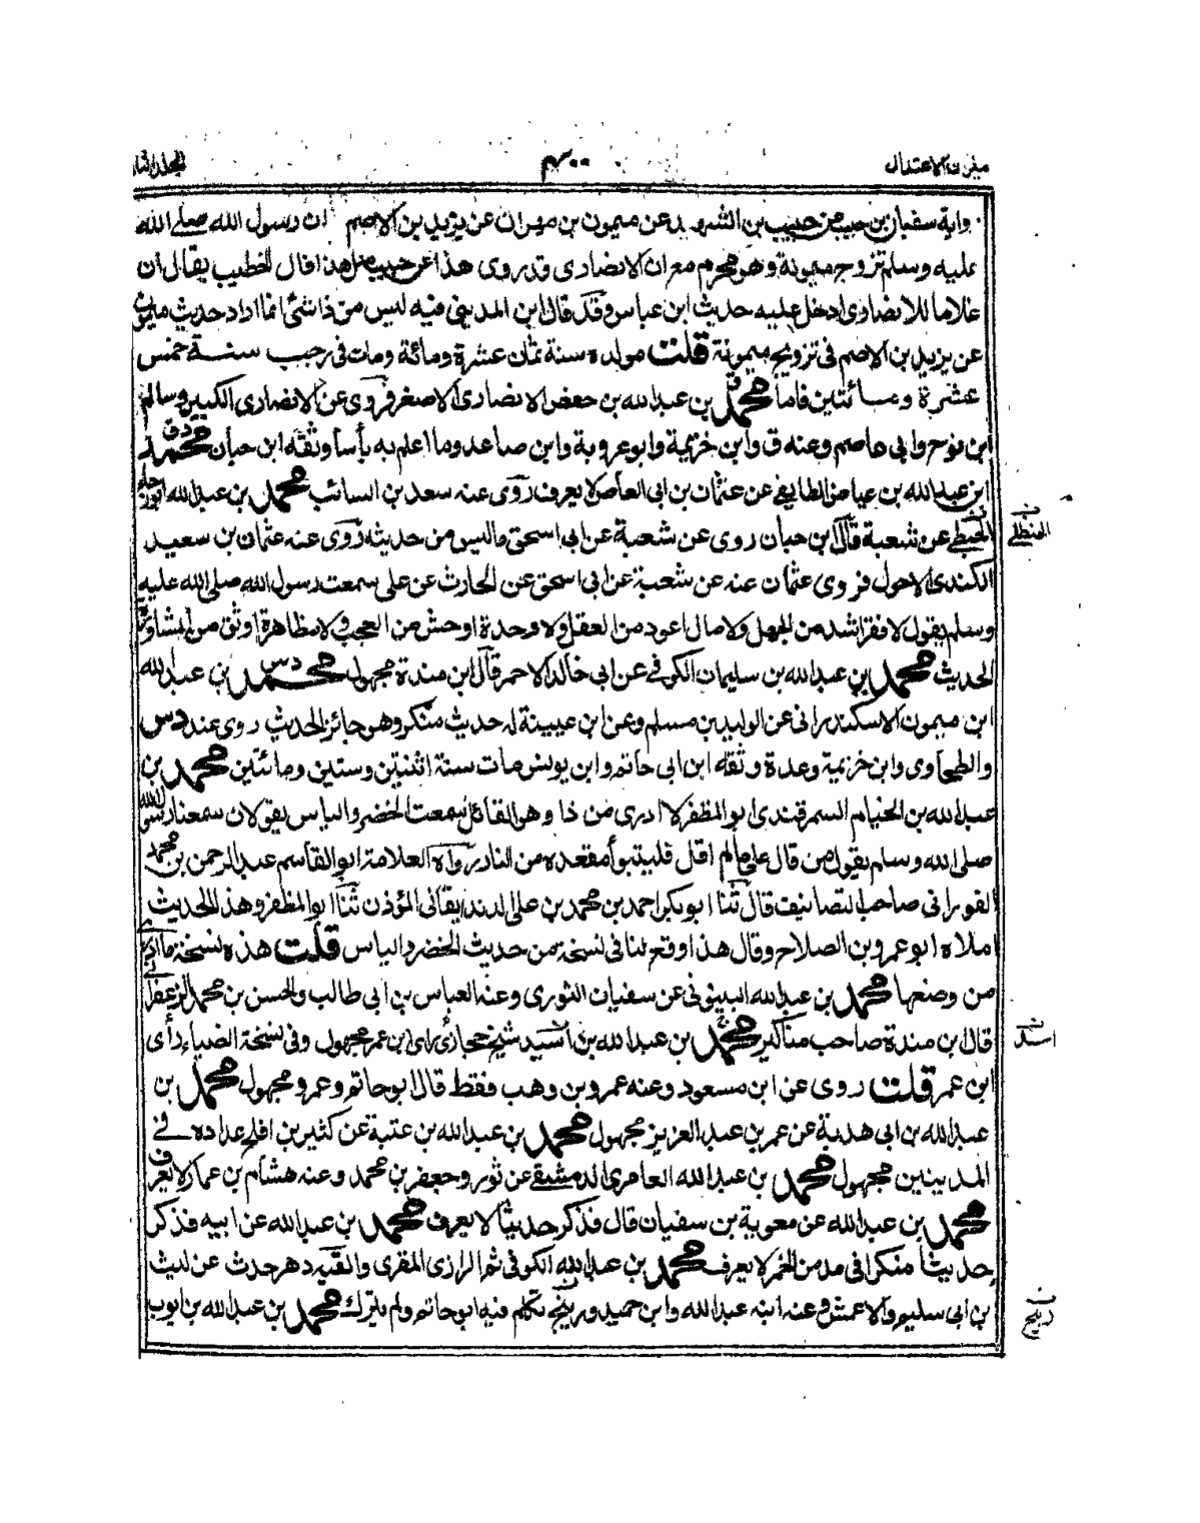 ميزان الاعتدال
٣٠٠
المجلد الثا
واية سفيان بن حبيب عن حبيب بن الشهيد عن ميمون بن مهران عن يزيد بن الاصم ان رسول الله صلى الله
عليه وسلم تزوج ميمونة وهو محرم معران الانصارى قد روى هذا عن حبيب مثل هذا قال الخطيب يقال ان
غلاما للانصارى ادخل عليه حديث ابن عباس وقد قال ابن المدينى فيه ليس من ذا شئ انما اراد حديث ميمون
عن يزيد بن الاصم فى تزويج ميمونة قلت مولده سنة ثمان عشرة ومائة ومات فى رجب سنة خمس
عشرة ومائتين فاما محمد ق بن عبدالله بن حفص الانصارى الاصغر فروى عن الانصارى الكبير وسالم
ابن نوح وابى عاصم وعنه ق وابن خزيمة وابو عروبة وابن صاعد وما اعلم به بأسا وثقه ابن حبان محمد دق
ابن عبدالله بن عياض الطايفى عن عثمان بن ابى العاص لا يعرف روى عنه سعد بن السائب محمد بن عبدالله ابو رجاء
الحبطى عن شعبة قال ابن حبان روى عن شعبة عن ابى اسحق ما ليس من حديثه روى عنه عثمان بن سعيد
الحنطلى
الكندى الاحول فروى عثمان عنه عن شعبة عن ابى اسحق عن الحارث عن على سمعت رسول الله صلى الله عليه
وسلم يقول لا فقر اشد من الجهل ولا مال اعود من العقل ولا وحدة اوحش من العجب ولا مظاهرة اوثق من المشاورة
الحديث محمد بن عبدالله بن سليمان الكوفى عن ابى خالد الاحمر قال ابن مندة مجهول محمد دس بن عبدالله
ابن ميمون الاسكندرانى عن الوليد بن مسلم وعن ابن عيينة له حديث منكر وهو جائز الحديث روى عنه دس
والطحاوى وابن خزيمة وعدة وثقه ابن ابى حاتم وابن يونس مات سنة اثنتين وستين ومائتين محمد بن
عبدالله بن الخيام السمرقندى ابو المظفر لا ادرى من ذا وهو القائل سمعت الخضر والياس يقولان سمعنا رسول الله
صلى الله وسلم يقول من قال على مالم اقل فليتبوأ مقعده من النار رواه العلامة ابو القاسم عبد الرحمن بن محمد
الفورانى صاحب التصانيف قال ثنا ابو بكر احمد بن محمد بن على الدندايقانى المؤذن ثنا ابو المظفر وهذا الحديث
املاه ابو عمرو بن الصلاح وقال هذا وقع لنا فى نسخة من حديث الخضر والياس قلت هذه نسخة ما ادرى
من وضعها محمد بن عبدالله البينونى عن سفيان الثورى وعنه العباس بن ابى طالب والحسن بن محمد الزعفرانى
قال ابن مندة صاحب مناكير محمد بن عبدالله بن اسيد شيخ حجازى راى ابن عمر مجهول وفى نسخة الضياء رأى
اسد
ابن عمر قلت روى عن ابن مسعود وعنه عمرو بن وهب فقط قال ابو حاتم وعمرو مجهول محمد بن
عبدالله بن ابى هدبة عن عمر بن عبد العزيز مجهول محمد بن عبدالله بن عتبة عن كثير بن افلح عداده فى
المدينين مجهول محمد بن عبدالله العامرى الدمشقى عن ثور وجعفر بن محمد وعنه هشام بن عمار لا يعرف
محمد بن عبدالله عن معوية بن سفيان قال فذكر حديثا لا يعرف محمد بن عبدالله عن ابيه فذكر
حديثا منكرا فى مدمن الخمر لا يعرف محمد بن عبدالله الكوفى ثم الرازى المقرى والقبه دهر حدث عن ليث
بن ابى سليم والاعمش وعنه ابنه عبدالله وابن حميد وربيح تكلم فيه ابو حاتم ولم يترك محمد بن عبدالله بن ايوب
ن
رنيج